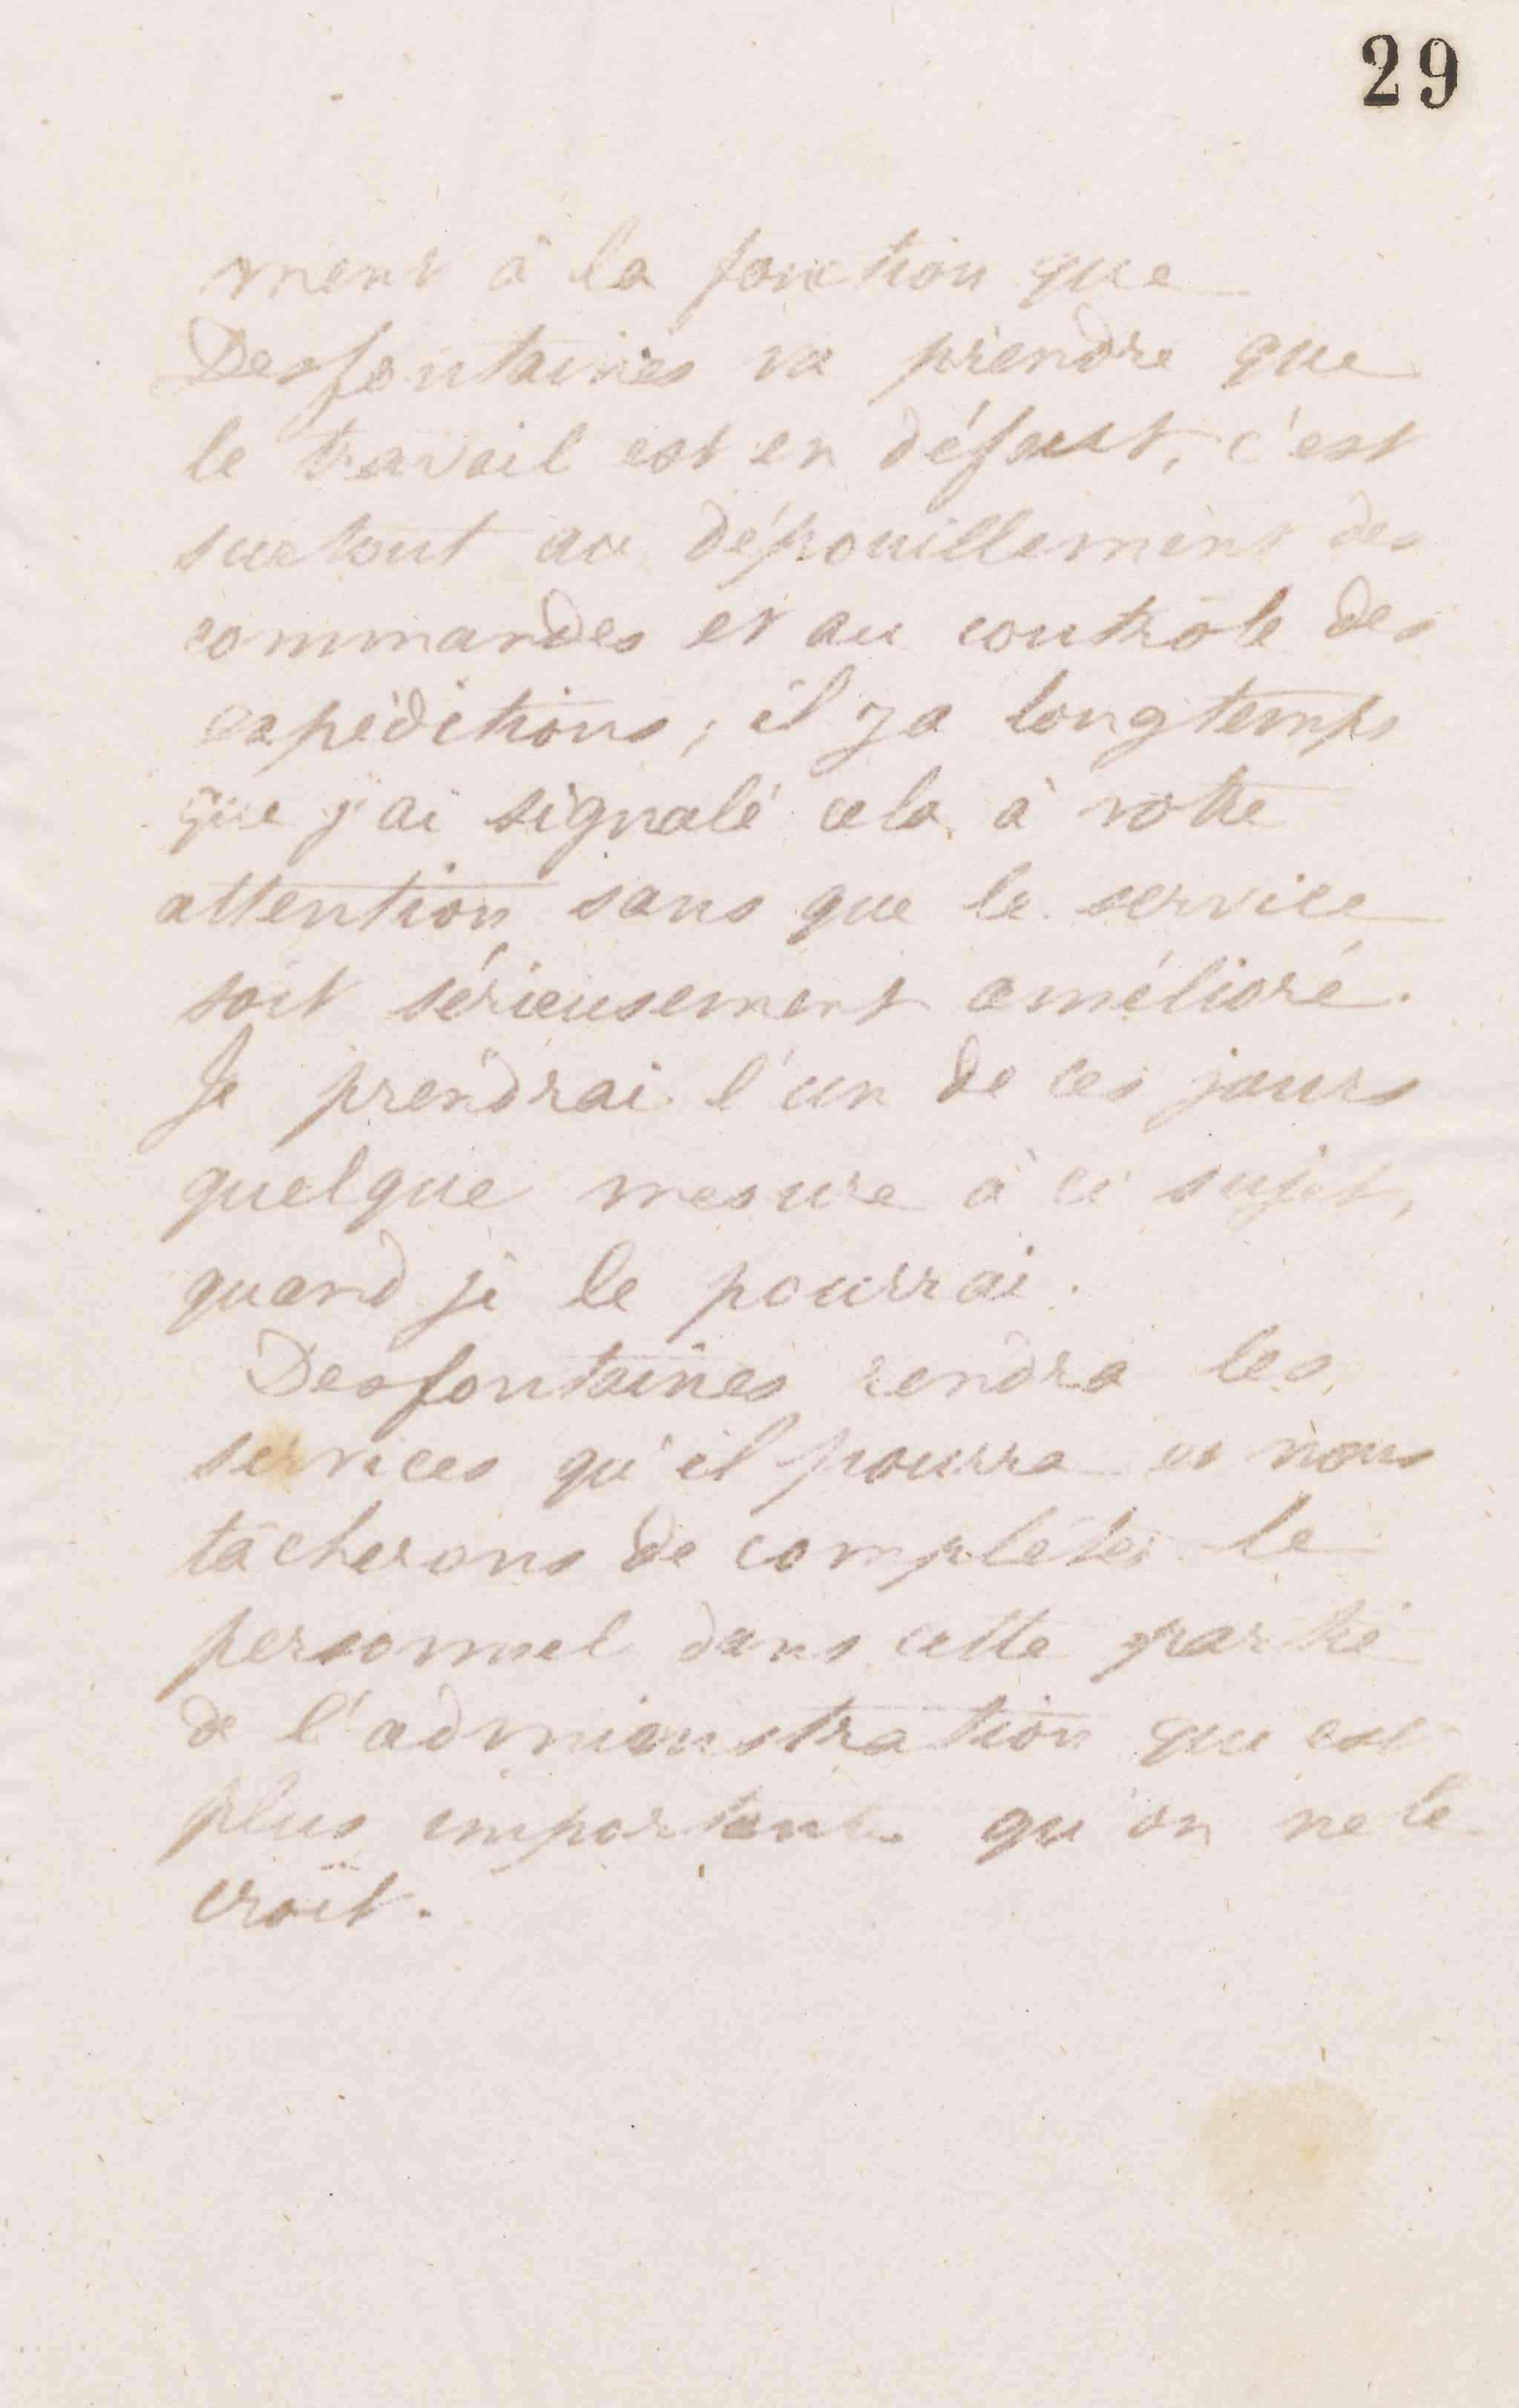 29
ment à la fonction que
Desfontaines va prendre que
le travail est en défaut, c'est
surtout au dépouillement des
commandes et au contrôle des
expéditions ; il y a longtemps
que j'ai signalé cela à votre
attention sans que le service
soit sérieusement amélioré.
Je prendrai l'un de ces jours
quelque mesure à ce sujet,
quand je le pourrai.
Desfontaines rendra les
services qu'il pourra et nous
tâcherons de compléter le
personnel dans cette partie
de l'administration qui est
plus importante qu'on ne le
croit.